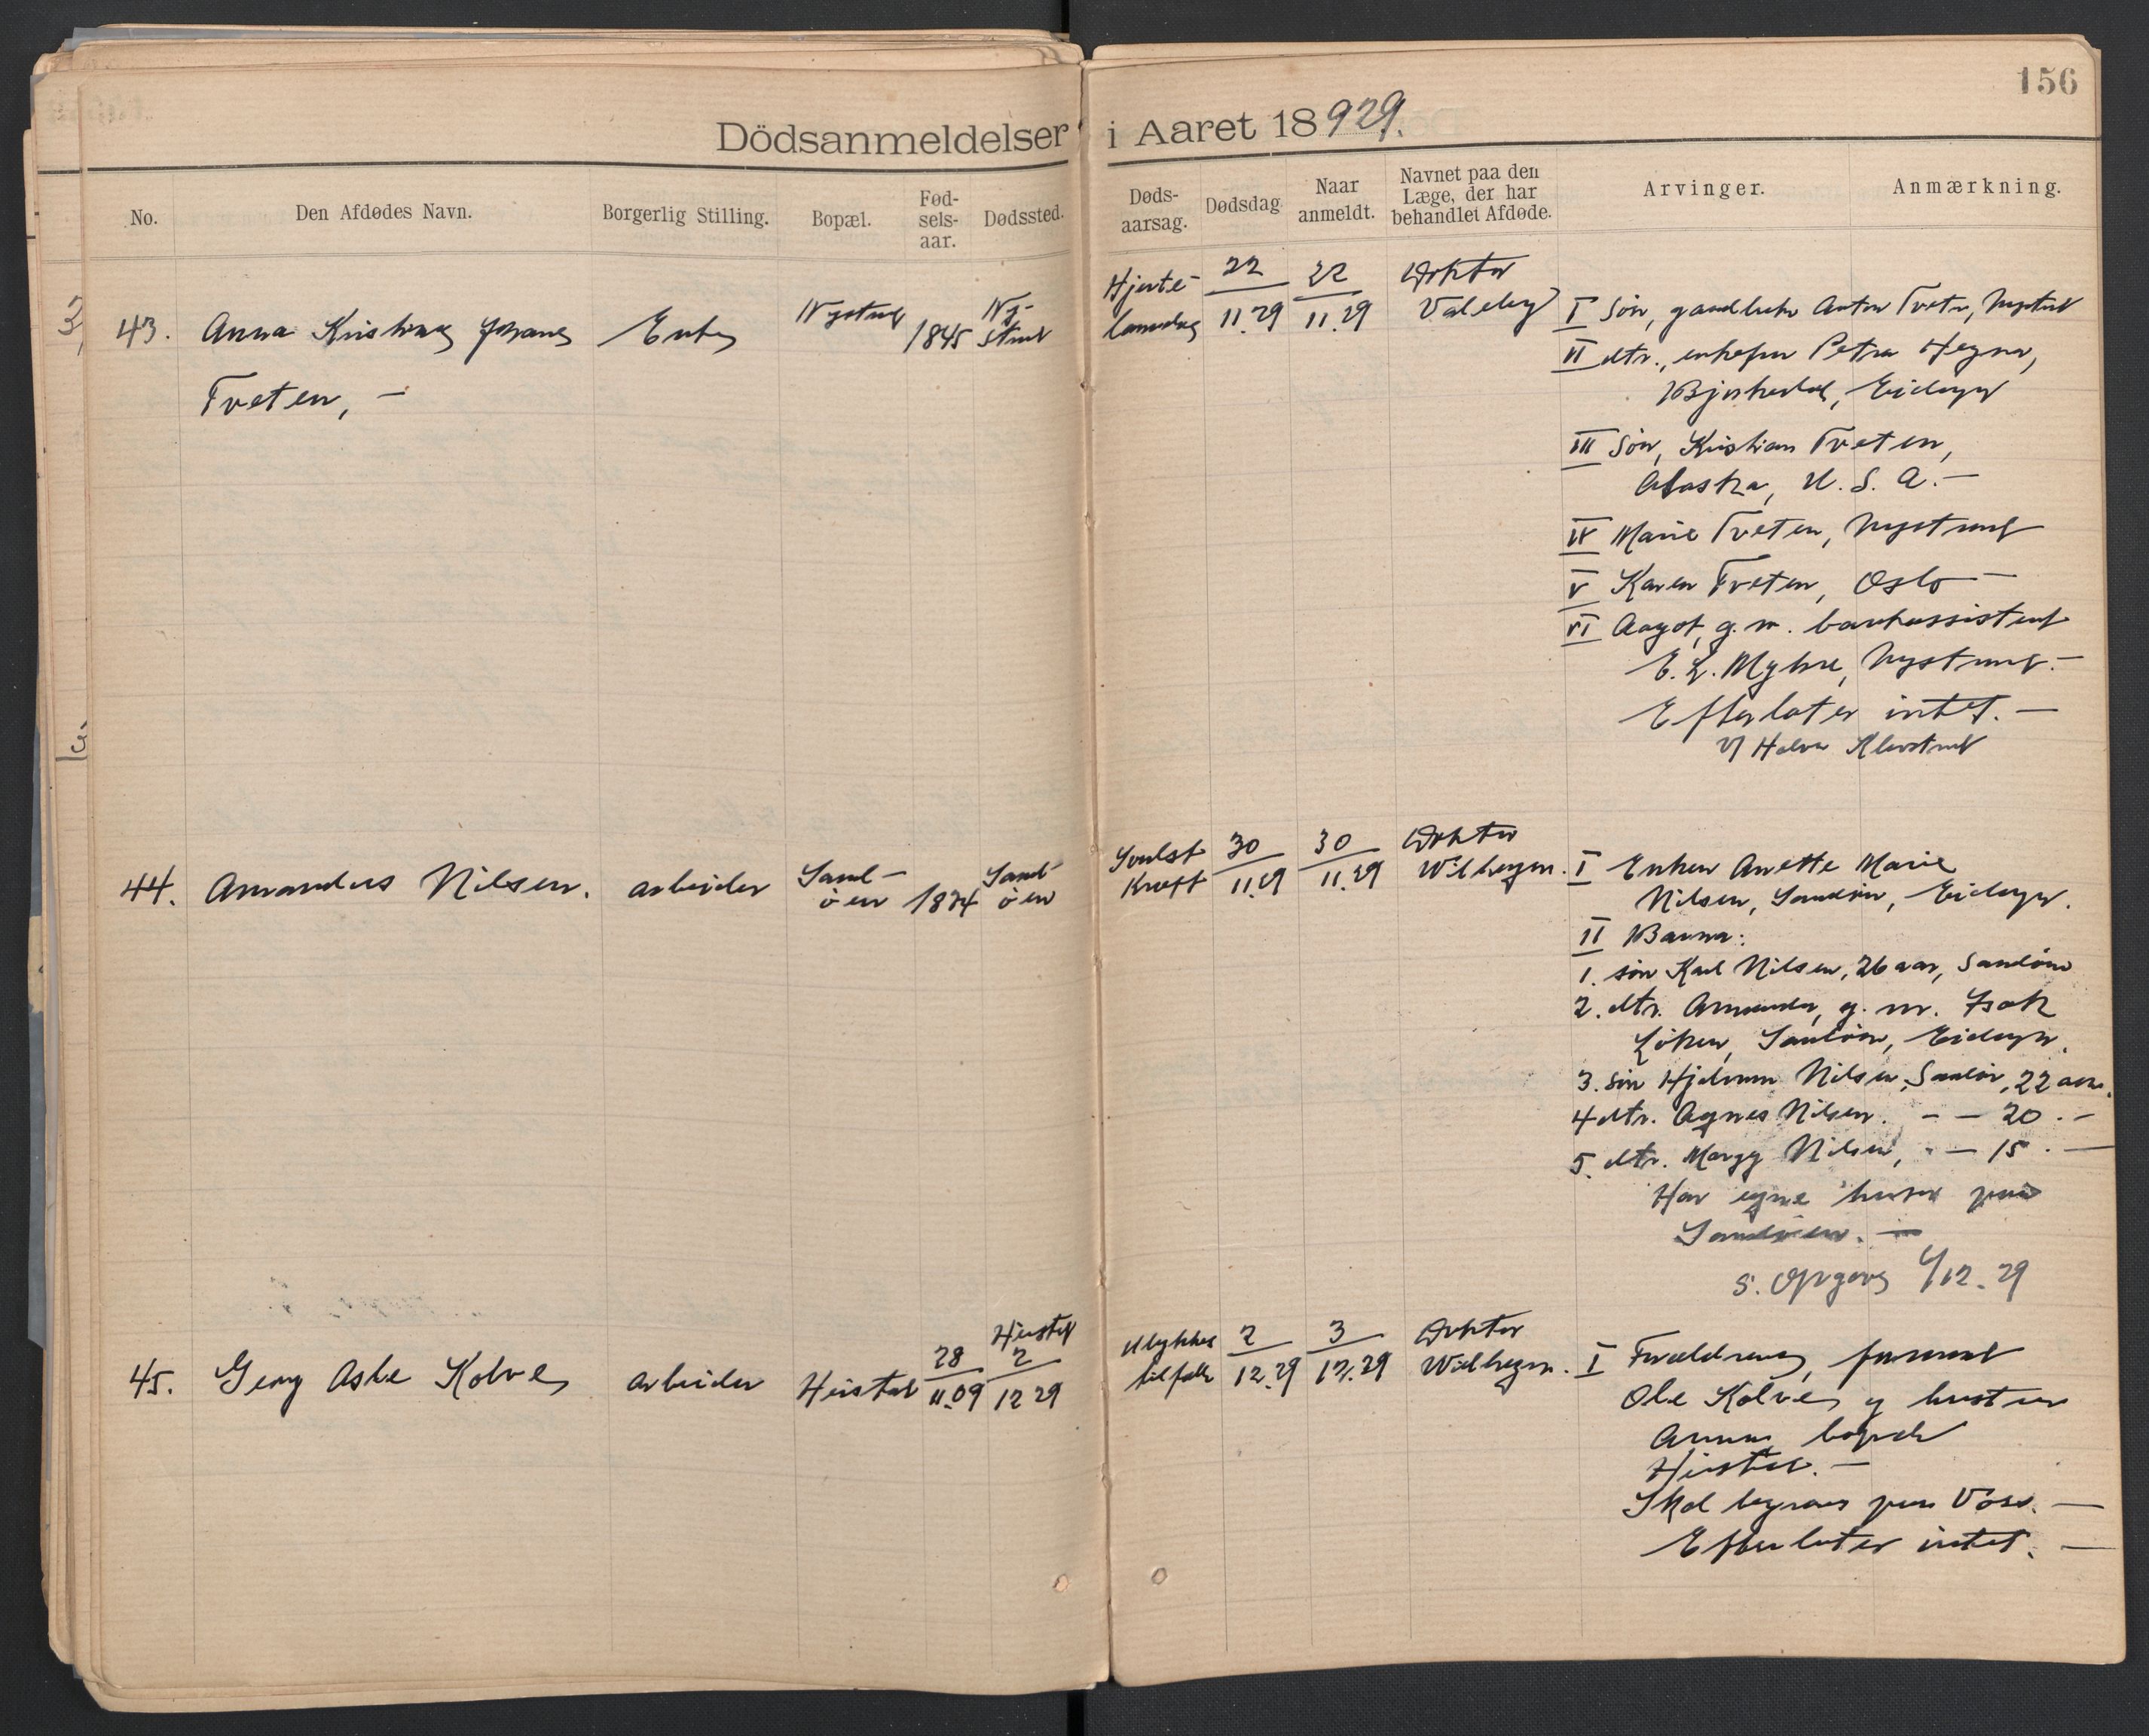 156
Dödsanmeldelser i Aaret 18929.
No.
Den Afdødes Navn.
Borgerlig Stilling.
Bopæl.
Fød-
sels-
aar.
Dødssted.
Døds-
aarsag.
Dødsdag
Naar
anmeldt.
Navnet paa den
Læge, der har
behandlet Afdøde.
Arvinger.
Anmærkning.
43.
Anna Kristine
Tveten, -
Enke
Nystrand
1845
Ny-
strand
Hjerte-
lammelse
22
11.29
22
11.29
Doktor
I Søn, Anton Tveten, Nystrand
II dtr., enkefru Petra Hegna,
Bjørkedal, Eidanger
III Søn, Kristian Tveten,
Alaska, U. S. A. —
IV Marie Tveten, Nystrand
V Karen Tveten, Oslo —
VI Aagot, g. m. bankassistent
E. L. Myhre, Nystrand. —
Efterlater intet. —
v/ Halvor Klevstrand
44.
Amandus Nilsen.
arbeider
Sand-
øen
1874
Sand-
øen
Svulst
Kræft
30
11.29
30
11.29
Doktor
I Enken Anette Marie
Nilsen, Sandøen, Eidanger.
II Barna:
1. søn Karl Nilsen, 26 aar, Sandøen
2. dtr. Amanda, g. m. Isak
Løken, Sandøen, Eidanger.
3. søn Hjalmar Nilsen, Sandøen, 22 aar.
4 dtr. Agnes Nilsen. - — 20. -
5. dtr. Margy Nilsen, - — 15. —
Har egne huser paa
Sandøen. —
S. Opgave 4/12. 29
45.
Georg Asle Kolve
arbeider
Heistad
28
11.09
Heistad
2
12 29
Ulykkes
tilfælle
2
12.29
3
12.29
Doktor
I Forældrene, formand
Ole Kolve og hustru
Anna, bopæl
Heistad. —
Skal begraves paa Voss. —
Efterlater intet. —